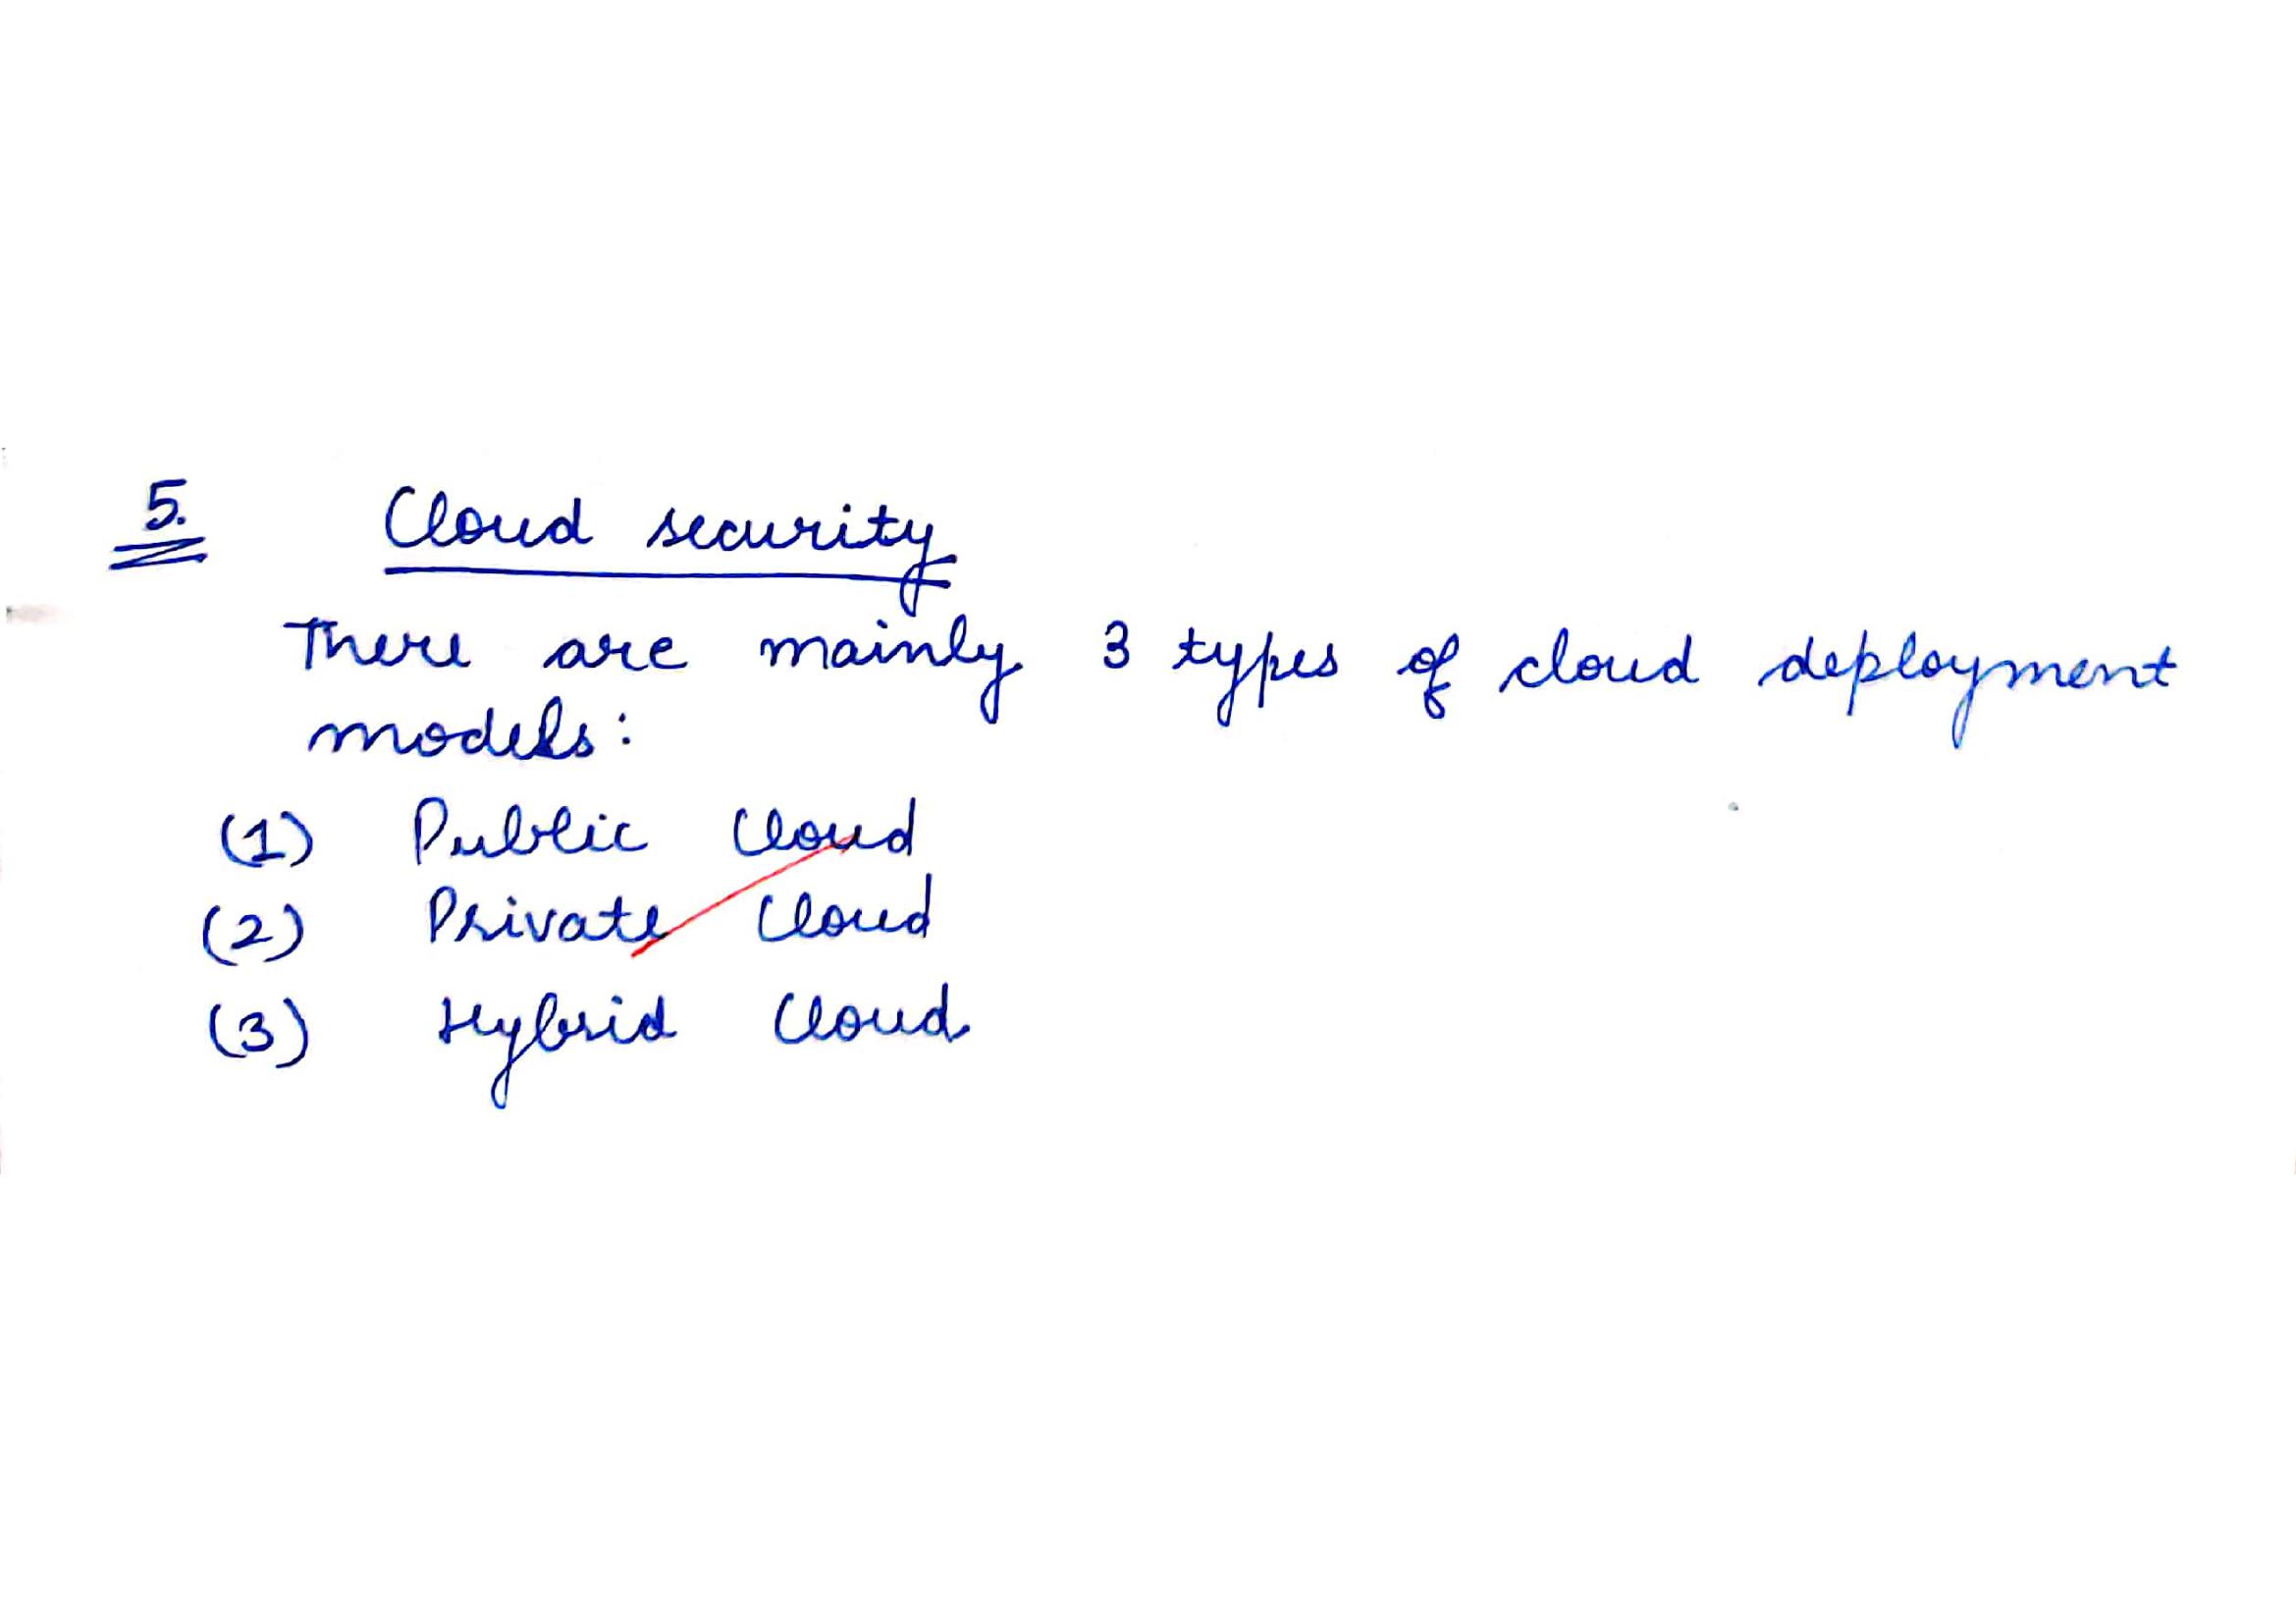 5. Cloud security
There are mainly 3 types of cloud deployment
models:
(1) Public Cloud
(2) Private Cloud
(3) Hybrid Cloud